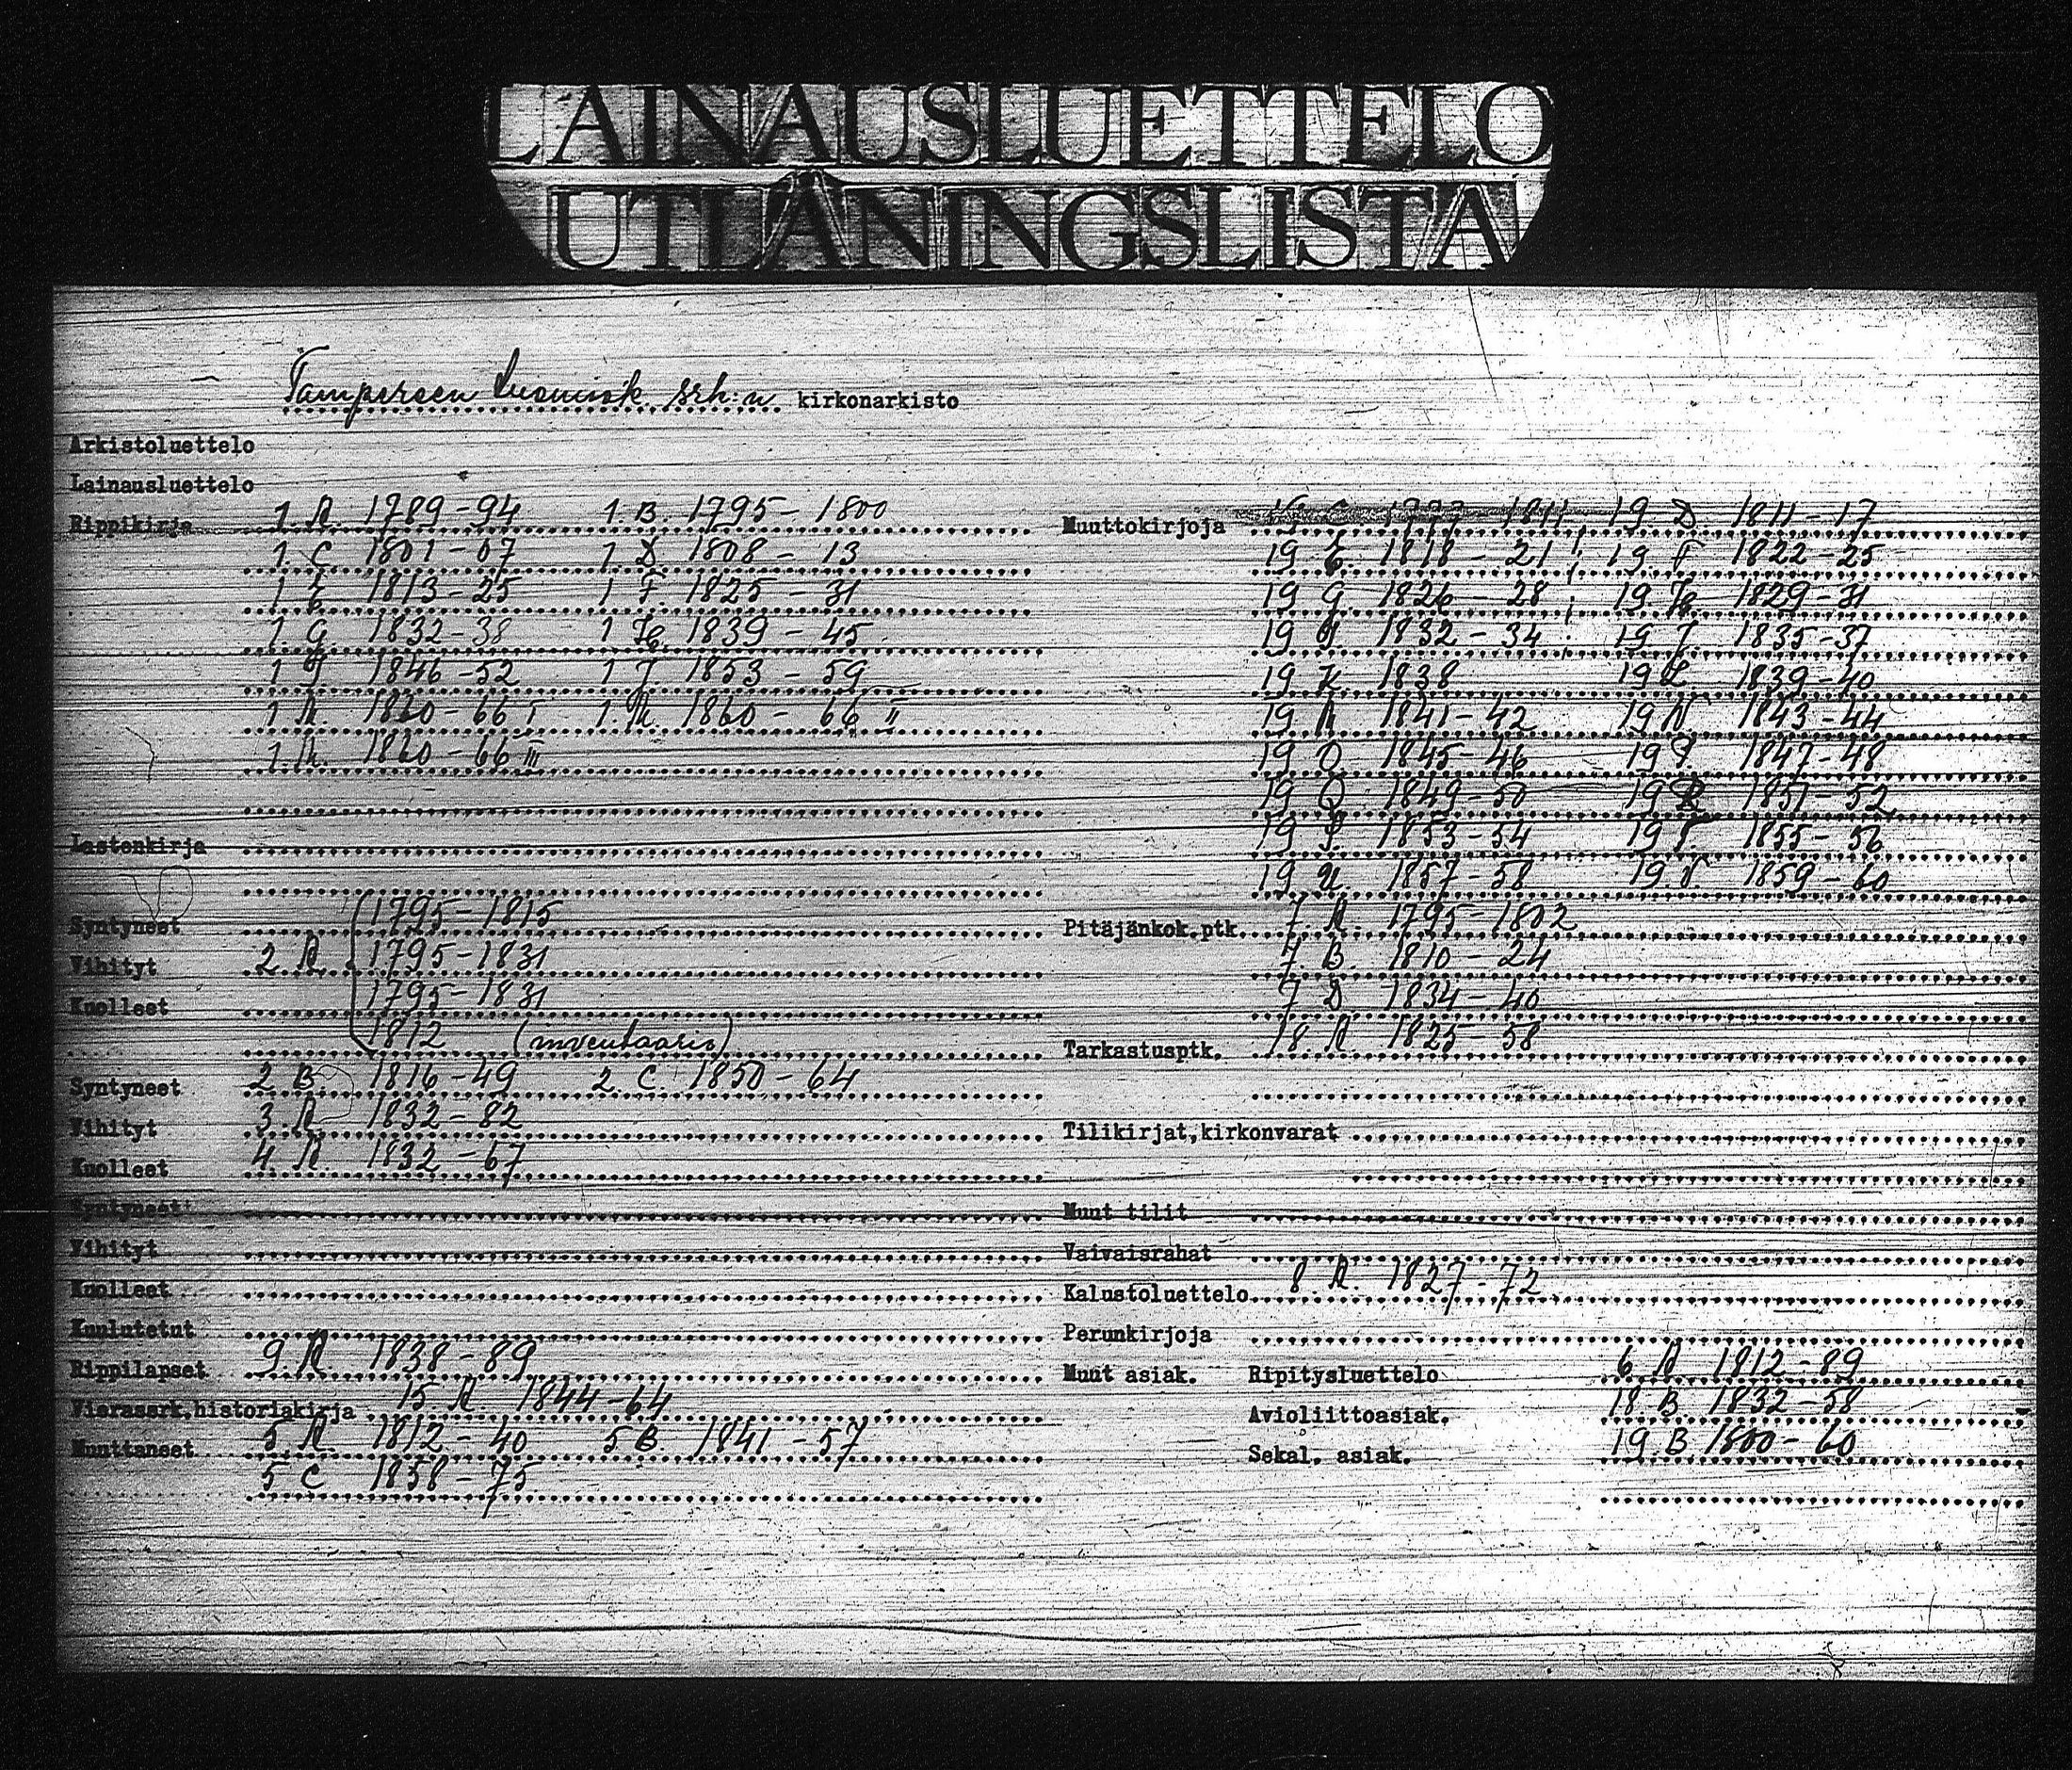 LAINAUSLUETTELO
UTLÅNINGSLISTA
Tampereen tuomiok. srh:n kirkonarkisto
Arkistoluettelo
Lainausluettelo
Rippikirja 1 A. 1789-94 1 B. 1795-1800
1 C. 1801-07 1 D. 1808-13
1 E 1813-25 1 F. 1825-31
1 G 1832-38 1 H. 1839-45
1 I 1846-52 1 J 1853-59
1 K. 1860-66 I 1. K. 1860-66 II
1. K. 1860-66 III
Lastenkirja
Syntyneet 1795-1815
Vihityt 2 A. 1795-1831
Kuolleet 1795-1831
1812 (inventaario)
Syntyneet 2 B. 1816-49 2. C. 1850-64
Vihityt 3 A 1832-82
Kuolleet 4 A. 1832-67
Syntyneet
Vihityt
Kuolleet
Kuulutetut
Rippilapset 9. A. 1838-89
Vierassrk,historiakirja 15. A. 1844-64
Muuttaneet 5 A. 1812-40 5 B. 1841-57
5 C 1858-75
Muuttokirjoja 1811 19 D. 1811-17
19 E. 1818-21 19 F 1822-25
19 G. 1826-28 19 H 1829-31
19 I 1832-34 19 J. 1835-37
19 K 1838 19 L 1839-40
19 M 1841-42 19 N 1843-44
19 O 1845-46 19 P 1847-48
19 Q 1849-50 19 R 1851-52
19 S. 1853-54 19 T. 1855-56
19 U. 1857-58 19 V. 1859-60
Pitäjänkok.ptk. 7. A. 1795-1802
7 B. 1810-24
7 D 1834-40
Tarkastusptk. 18. A 1825-58
Tilikirjat,kirkonvarat
Muut tilit
Vaivaisrahat
Kalustoluettelo 8 A. 1827-72
Perunkirjoja
Muut asiak. Ripitysluettelo 6 A 1812-89
Avioliittoasiak. 18 B 1832-58
Sekal. asiak. 19 B 1800-60